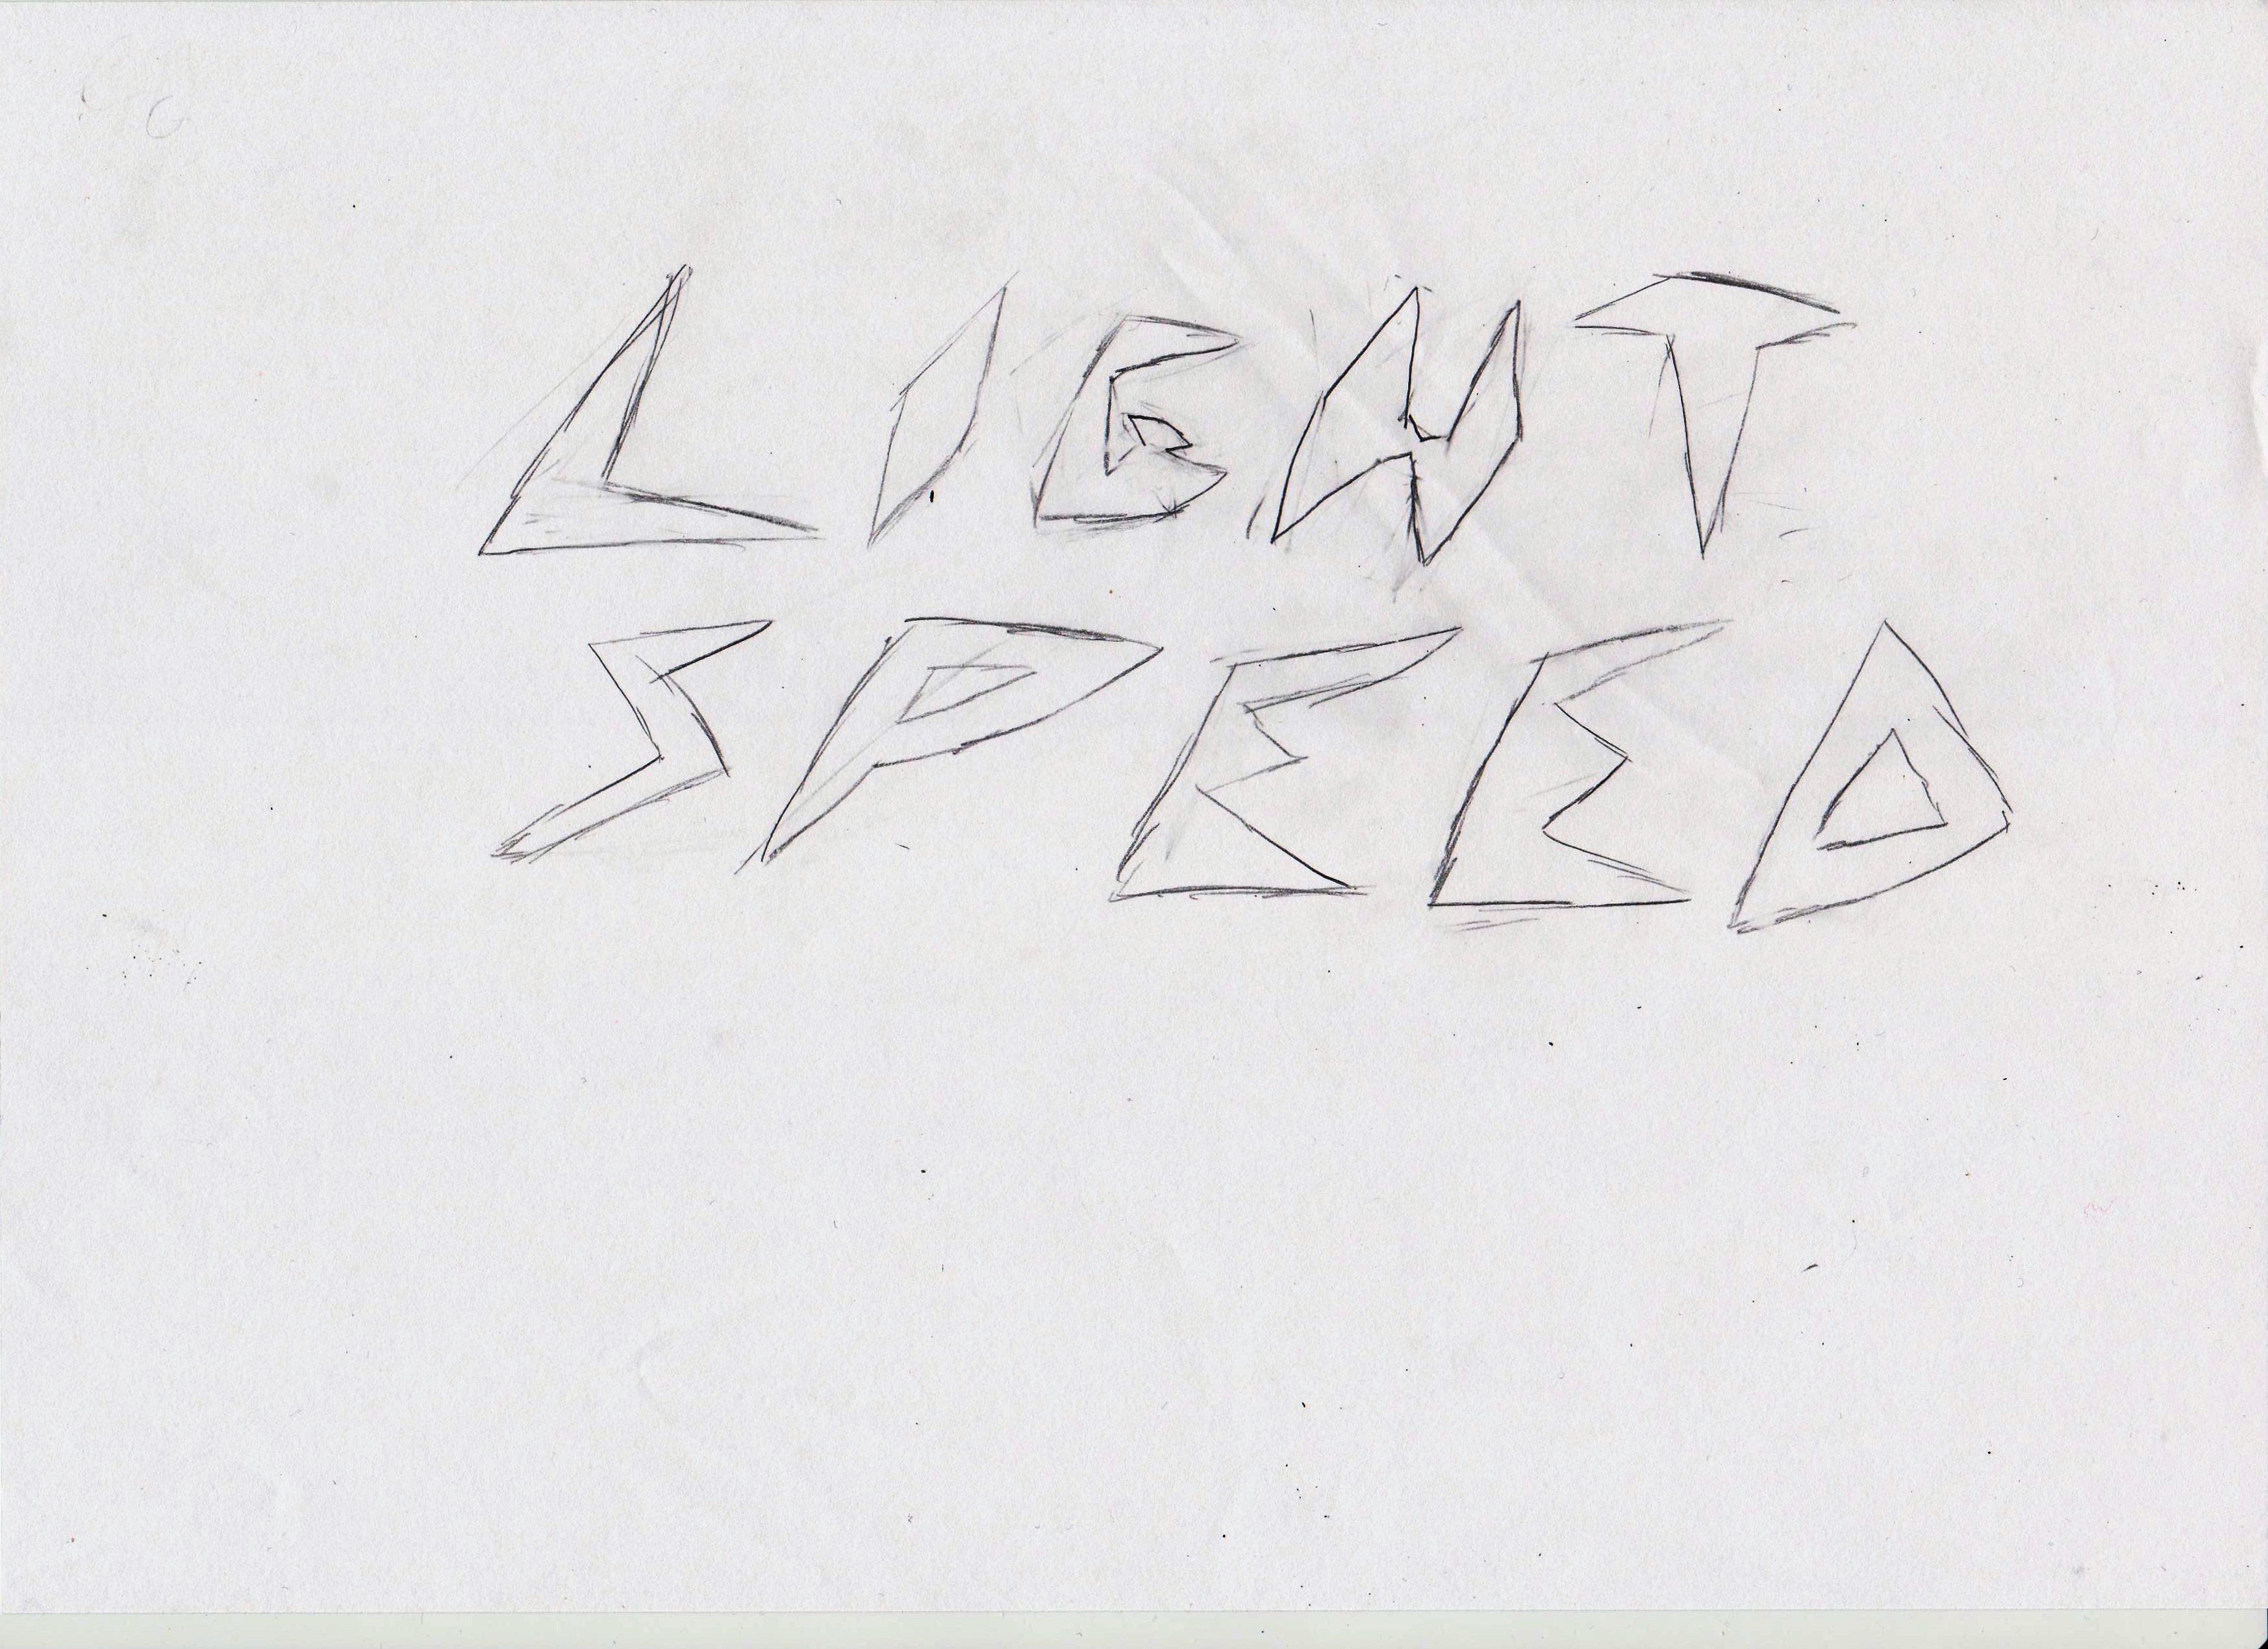 LIGHT
SPEED